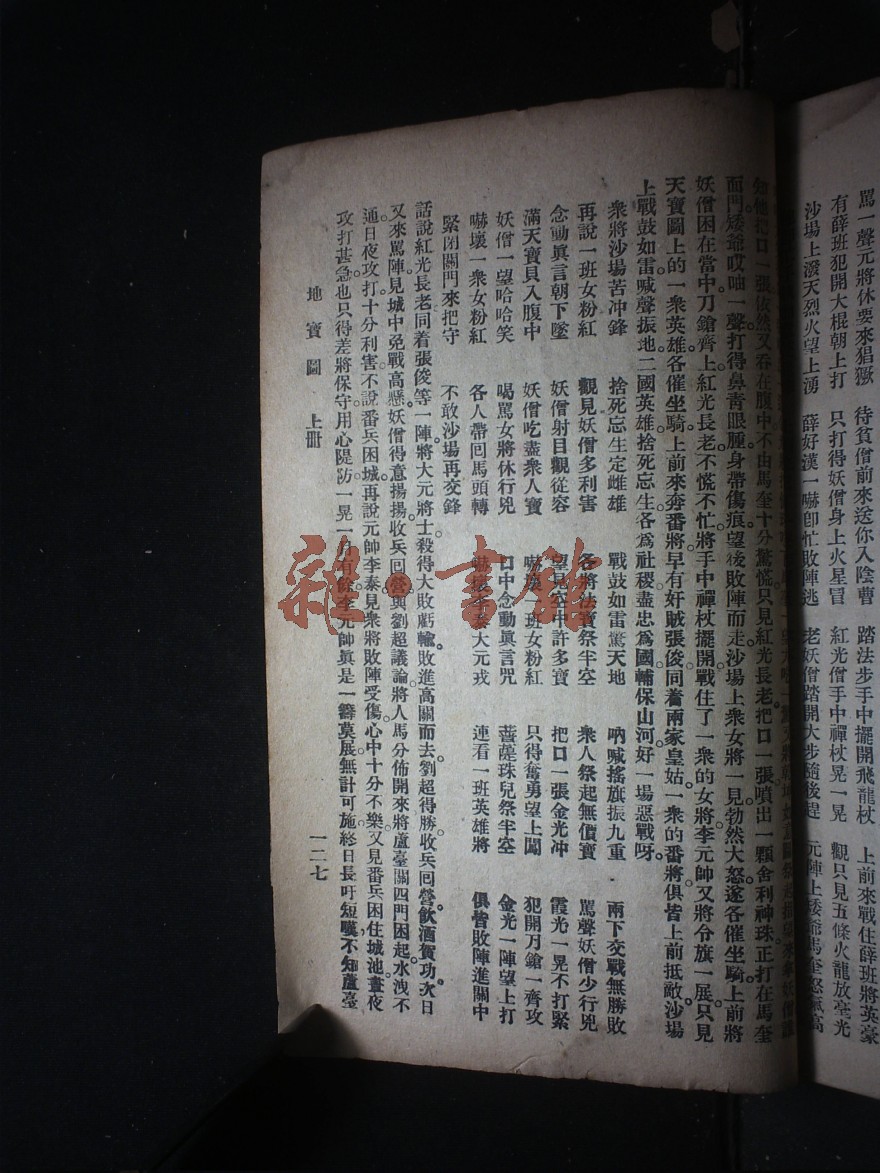 罵一聲元將休要來猖獗　待貧僧前來送你入陰曹　踏法步手中擺開飛龍杖　上前來戰住薛班將英豪
有薛班犯開大棍朝上打　只打得妖僧身上火星冒　紅光僧手中禪杖晃一晃　觀只見五條火龍放毫光
沙場上潑天烈火望上湧　薛好漢一嚇卽忙敗陣逃　老妖僧踏開大步隨後趕　元陣上矮爺馬奎怒氣高
知他把口一張依然又吞在腹中不由馬奎十分驚慌只見紅光長老把口一張噴出一顆舍利神珠正打在馬奎
面門矮爺哎呦一聲打得鼻青眼腫身帶傷痕望後敗陣而走沙場上衆女將一見勃然大怒遂各催坐騎上前將
妖僧困在當中刀鎗齊上紅光長老不慌不忙將手中禪杖擺開戰住了一衆的女將李元帥又將令旗一展只見
天寶圖上的一衆英雄各催坐騎上前來奔番將早有奸賊張俊同着兩家皇姑一衆的番將俱皆上前抵敵沙場
上戰鼓如雷喊聲振地二國英雄捨死忘生各爲社稷盡忠爲國輔保山河好一場惡戰呀
衆將沙場苦冲鋒　捨死忘生定雌雄　戰鼓如雷驚天地　吶喊搖旗振九重　兩下交戰無勝敗
再說一班女粉紅　觀見妖僧多利害　各將法寶祭半空　衆人祭起無價寶　罵聲妖僧少行兇
念動眞言朝下墜　妖僧射目觀從容　望見空中許多寶　把口一張金光冲　霞光一晃不打緊
滿天寶貝入腹中　妖僧吃盡衆人寶　嚇壞一班女粉紅　只得奮勇望上闖　犯開刀鎗一齊攻
妖僧一望哈哈笑　喝罵女將休行兇　口中念動眞言咒　菩薩珠兒祭半空　金光一陣望上打
嚇壞一衆女粉紅　各人帶回馬頭轉　嚇壞李泰大元戎　連看一班英雄將　俱皆敗陣進關中
緊閉關門來把守　不敢沙場再交鋒
話說紅光長老同着張俊等一陣將大元將士殺得大敗虧輸敗進高關而去劉超得勝收兵回營飲酒賀功次日
又來罵陣見城中免戰高懸妖僧得意揚揚收兵回營與劉超議論將人馬分佈開來將蘆臺關四門困起水洩不
通日夜攻打十分利害不說番兵困城再說元帥李泰見衆將敗陣受傷心中十分不樂又見番兵困住城池晝夜
攻打甚急也只得差將保守用心隄防一晃一月有餘李元帥眞是一籌莫展無計可施終日長吁短嘆不知蘆臺
地寶圖　上冊　一二七
雜·書館